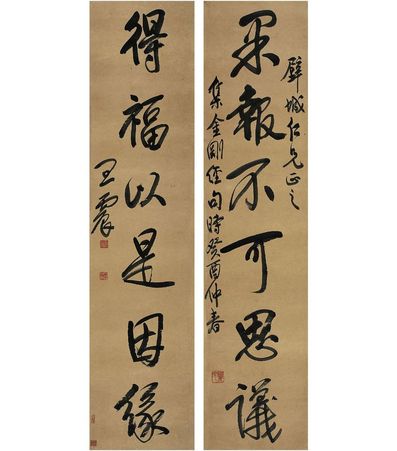 果報不可思議
璧城仁兄正之
集金剛經句時癸酉仲春
得福以是因緣
王震